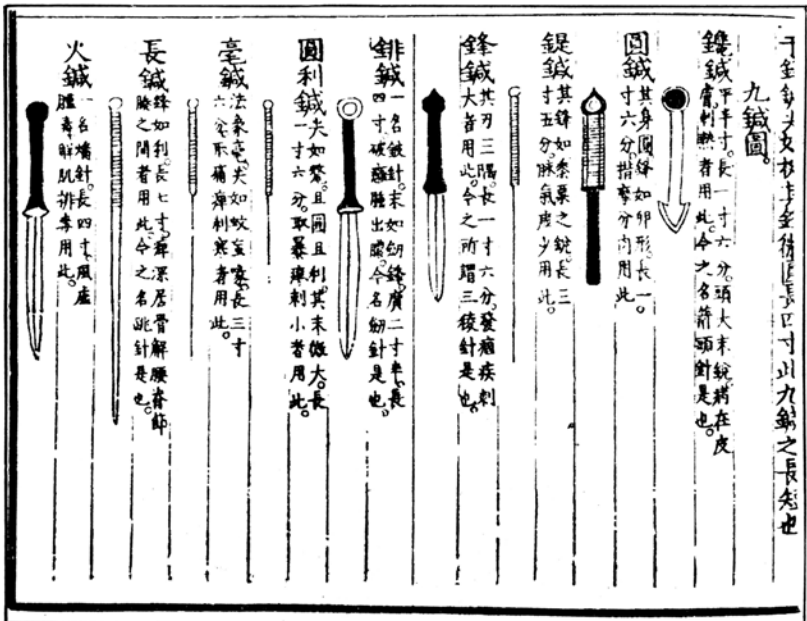 長四寸此九鍼之長短也
九鍼圖。
鑱鍼 平半寸。長一寸六分。頭大末銳。病在皮
膚。刺熱者用此。今之名箭頭針是也。
圓鍼 其身圓。鋒如卵形。長一
寸六分。揩摩分肉用此。
鍉鍼 其鋒如黍粟之銳。長三
寸五分。脉氣虛少用此。
鋒鍼 其刃三隅。長一寸六分。發痼疾刺
大者用此。今之所謂三稜針是也。
鍼 一名鈹針。末如劒鋒。廣二寸半。長
四寸。破癰腫出膿。今名劒針是也。
圓利鍼 尖如氂。且圓且利。其末微大。長
一寸六分。取暴痺刺小者用此。
毫鍼 法象毫。尖如蚊虻喙。長三寸
六分。取痛痺刺寒者用此。
長鍼 鋒如利。長七寸。痺深居骨解腰脊節
腠之間者用此。今之名跳針是也。
火鍼 一名燔針。長四寸。風虛
腫毒。解肌排毒用此。